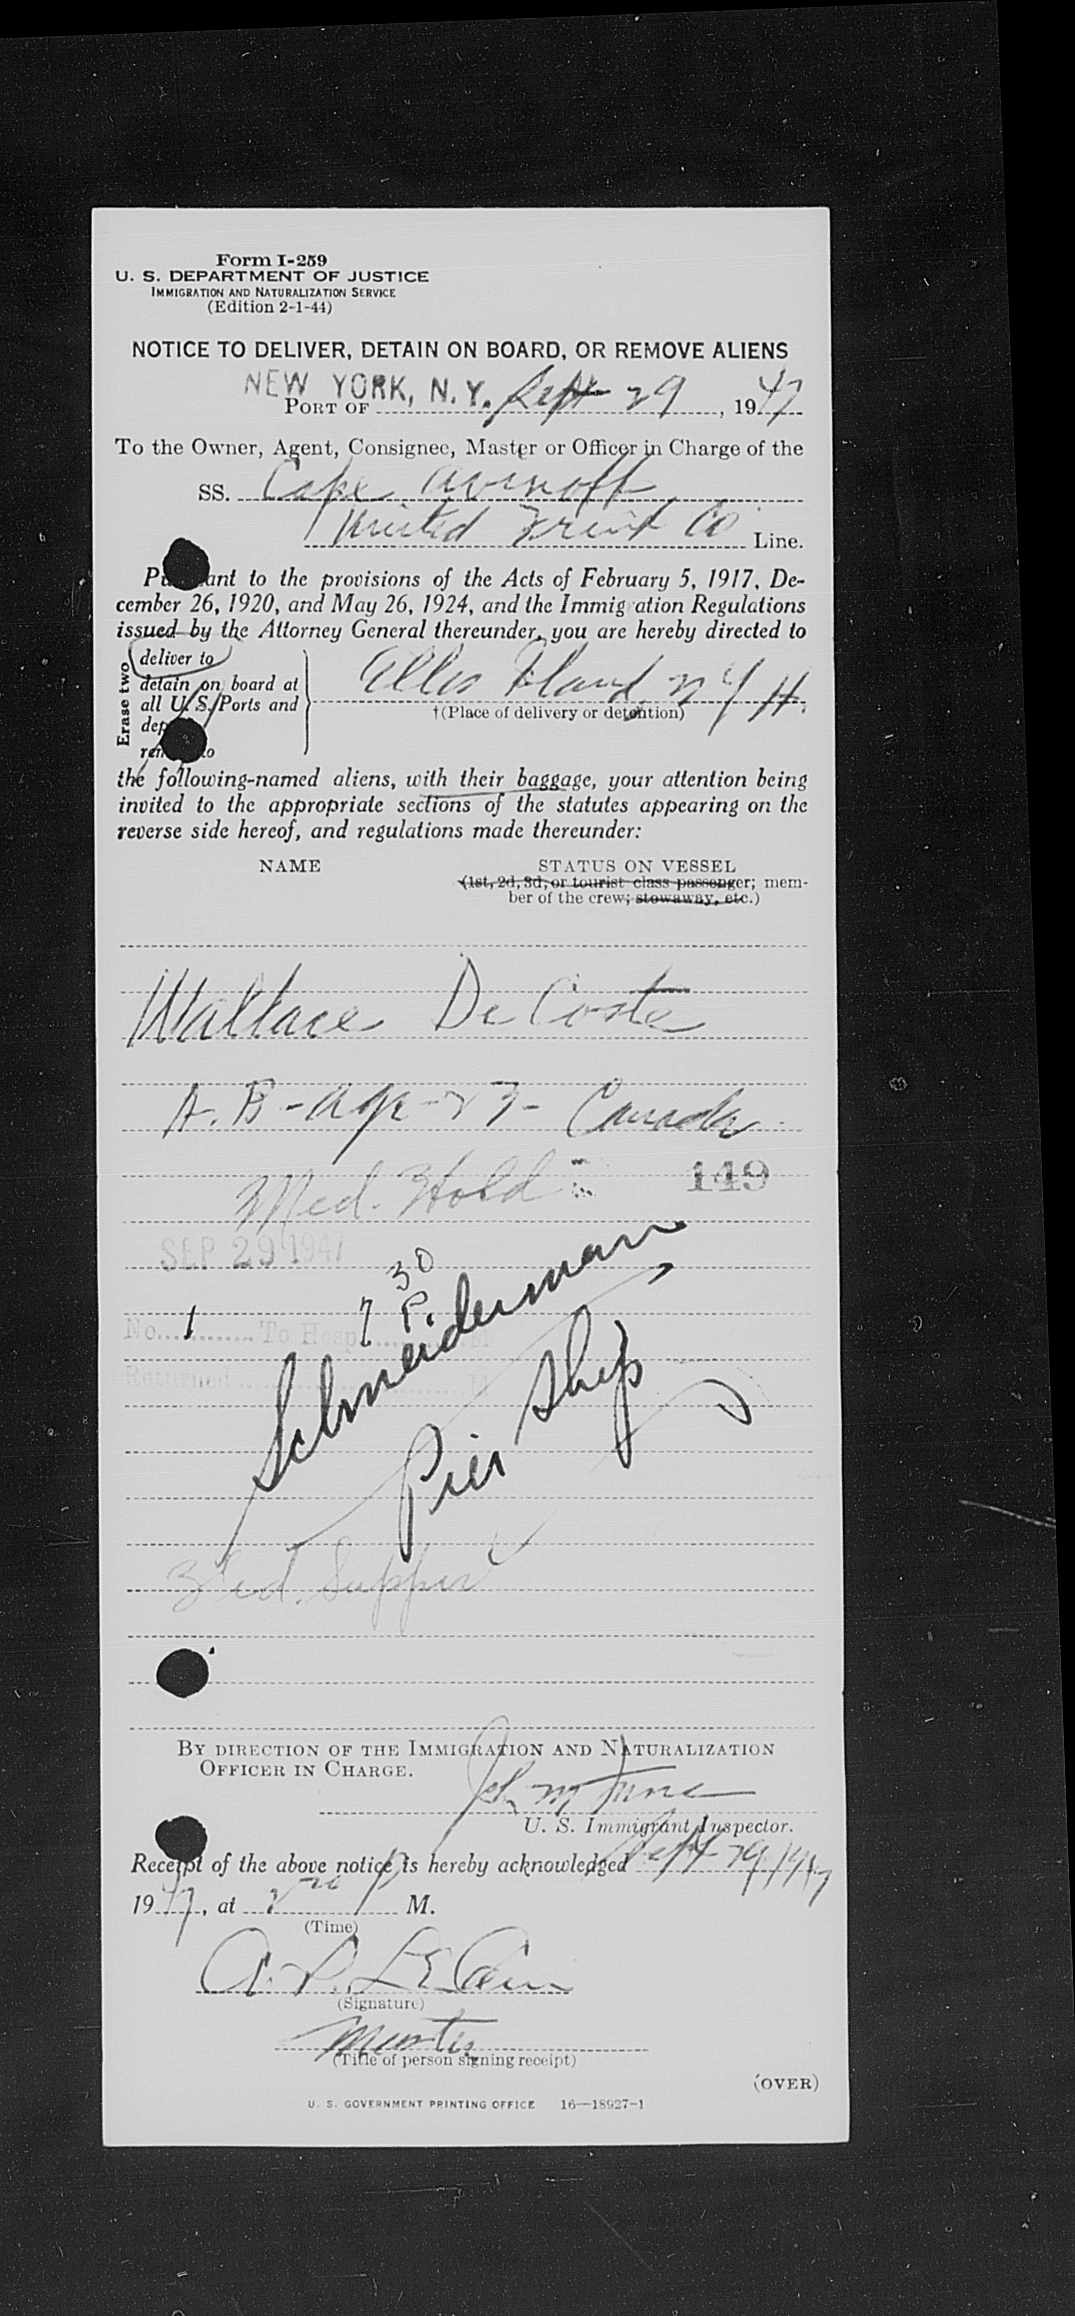 Form I-259
U. S. DEPARTMENT OF JUSTICE
IMMIGRATION AND NATURALIZATION SERVICE
(Edition 2-1-44)
NOTICE TO DELIVER, DETAIN ON BOARD, OR REMOVE ALIENS
NEW YORK, N. Y.
PORT OF Sept 29, 1947
To the Owner, Agent, Consignee, Master or Officer in Charge of the
SS. Cape Avinoff
United Fruit Co Line.
Pursuant to the provisions of the Acts of February 5, 1917, De-
cember 26, 1920, and May 26, 1924, and the Immigration Regulations
issued by the Attorney General thereunder, you are hereby directed to
Erase two
deliver to
detain on board at
all U. S. Ports and
Ellis Island N Y H.
†(Place of delivery or detention)
the following-named aliens, with their baggage, your attention being
invited to the appropriate sections of the statutes appearing on the
reverse side hereof, and regulations made thereunder:
NAME STATUS ON VESSEL
(1st, 2d, 3d, or tourist class passenger; mem-
ber of the crew; stowaway, etc.)
Wallace De Coste
A. B - age - 27 - Canada
Med. Hold 149
SEP 29 1947
7 30 P.
No. 1 To Hosp
Returned M
Schneiderman
Pier Ship
Supper
BY DIRECTION OF THE IMMIGRATION AND NATURALIZATION
OFFICER IN CHARGE.
U. S. Immigrant Inspector.
Receipt of the above notice is hereby acknowledged Sept 29 1947
1947, at P M.
(Time)
(Signature)
Master
(Title of person signing receipt)
(OVER)
U. S. GOVERNMENT PRINTING OFFICE 16—18927-1